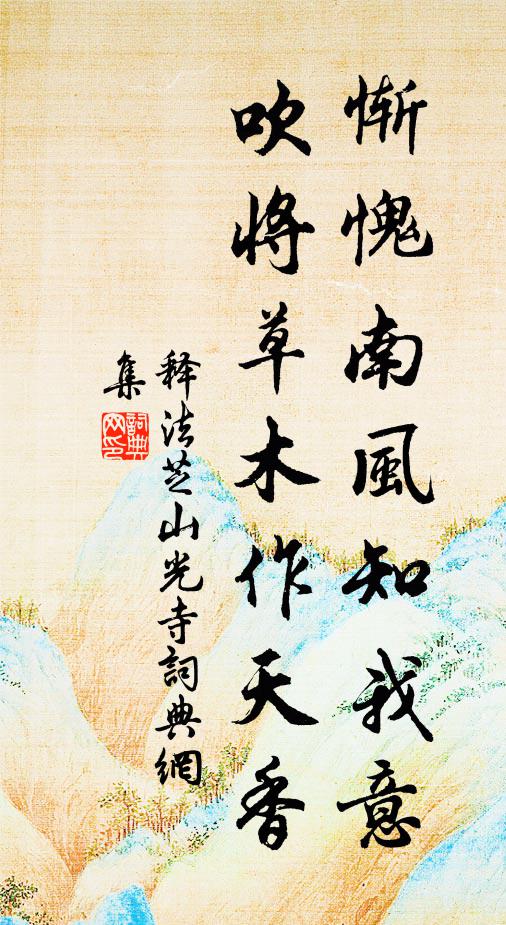 慚愧南風知我意
吹將草木作天香
释法芝山光寺詞典網
集
詞典网印